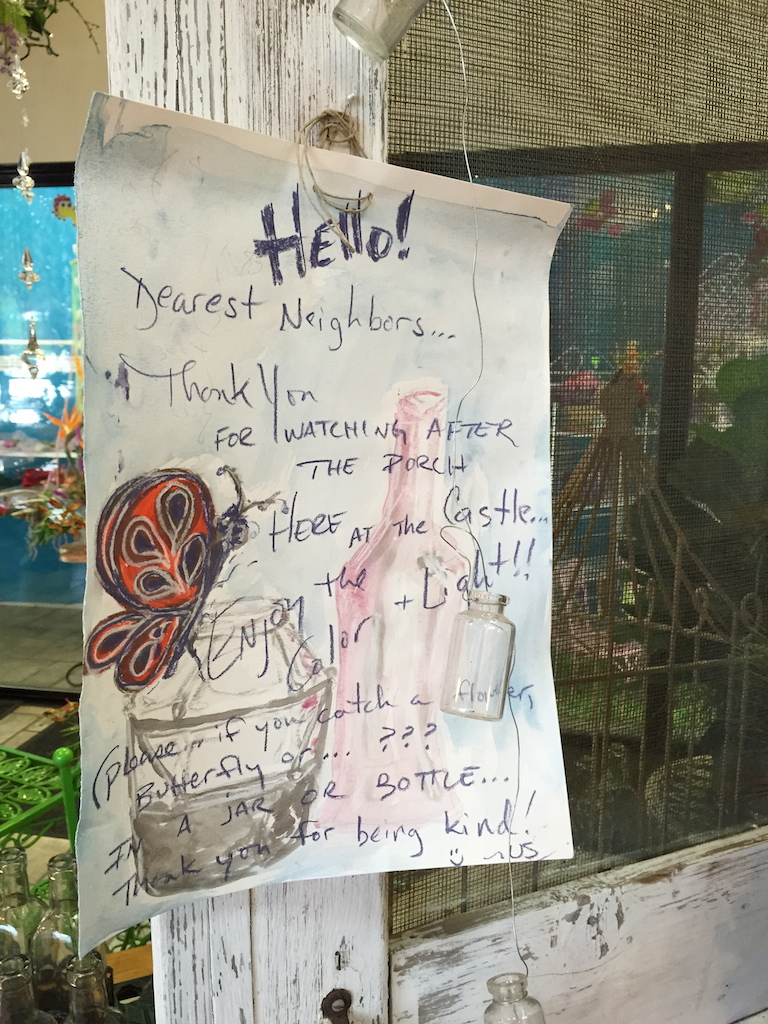 Hello!
Dearest Neighbors...
Thank You
FOR WATCHING AFTER
THE PORCH
HERE AT the Castle...
ENJOY the Color + Light!!
(please... if you catch a flower,
Butterfly or... ???
IN A JAR OR BOTTLE...
Thank you for being kind!
~US